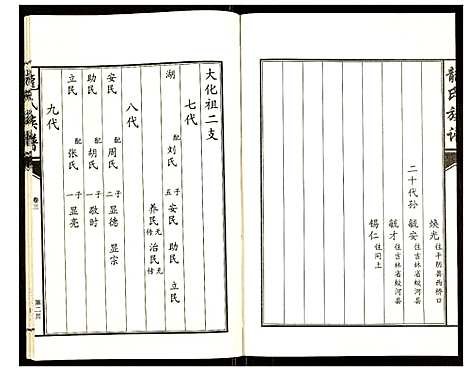 龍氏族譜
煥光 住平陰县西桥口
二十代孙
毓安 住吉林省蛟河县
毓才 住吉林省蛟河县
锡仁 住同上
大化祖二支
七代
湖 配刘氏 五子 安民 助民 立民
养民 修元 治民 修元
八代
安民 配周氏 二子 显德 显宗
助民 配胡氏 一子 敬时
立民 配张氏 一子 显亮
九代
龍氏族譜
卷三
第二页